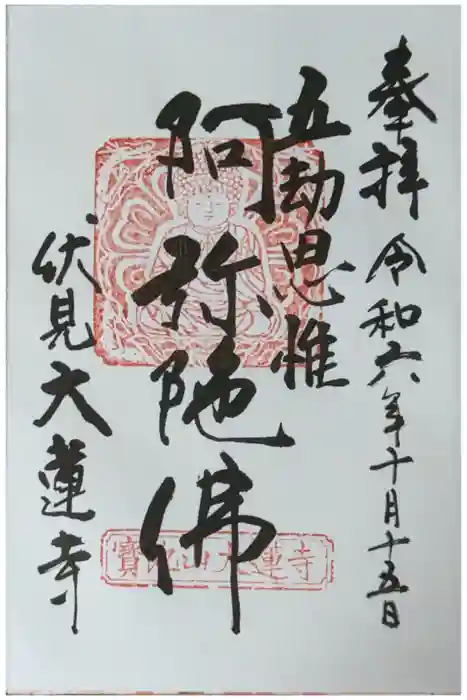 奉拝 令和六年十月十五日
五劫思惟
阿弥陀佛
伏見大蓮寺
寳池山大蓮寺